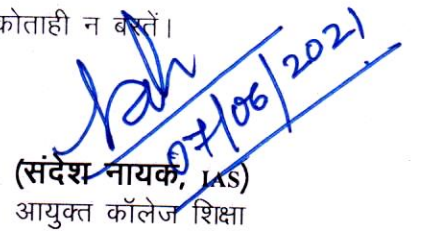 कोताही न बरतें।
07/06/2021
(संदेश नायक, IAS)
आयुक्त कॉलेज शिक्षा